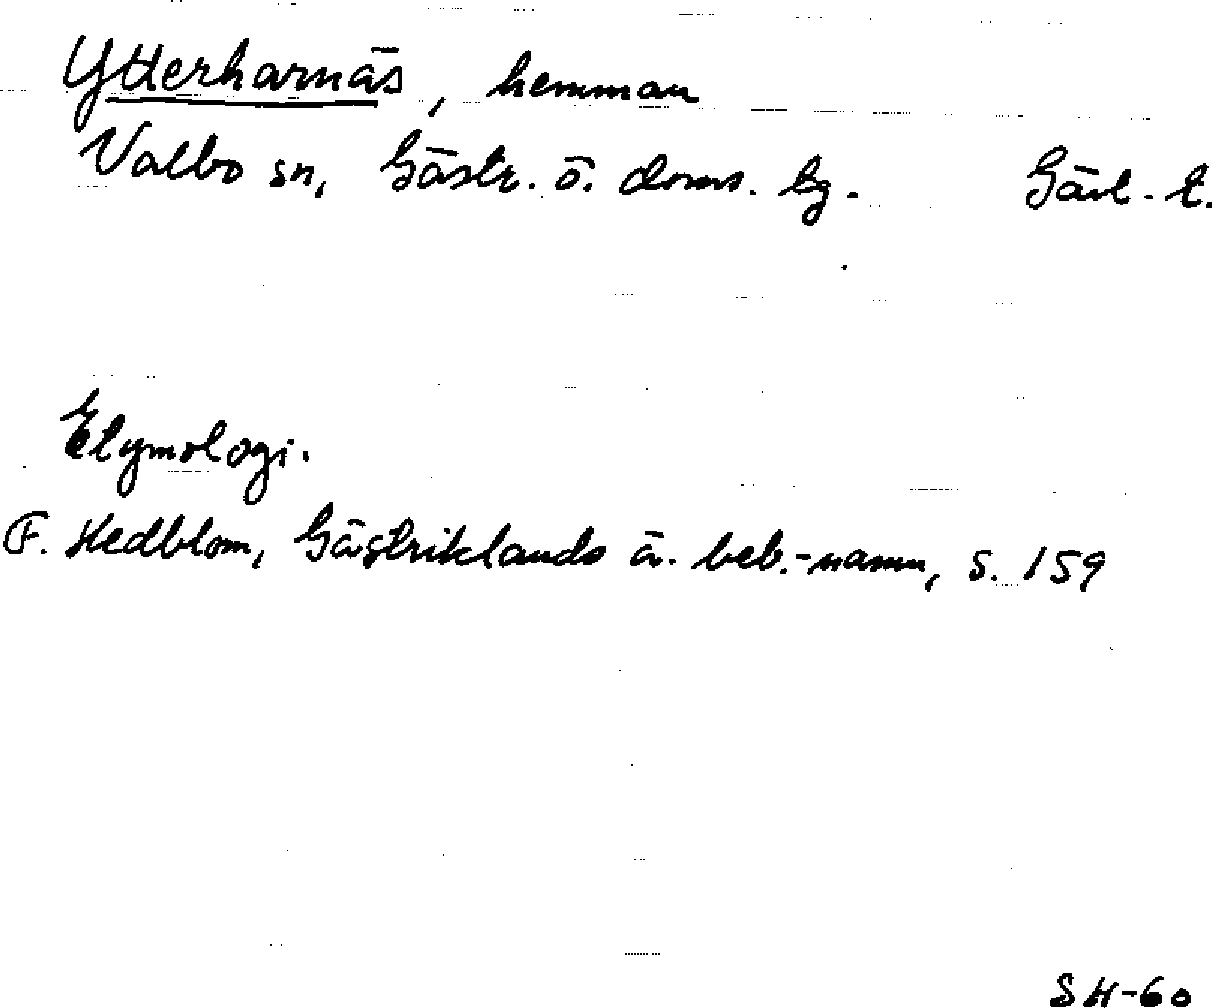 Ytterharnäs, hemman
Valbo sn, Gästr. ö. doms. tg. Gävl. l.
Etymologi.
F. Hedblom, Gästriklands ä. beb.-namn, s. 159
SH-60